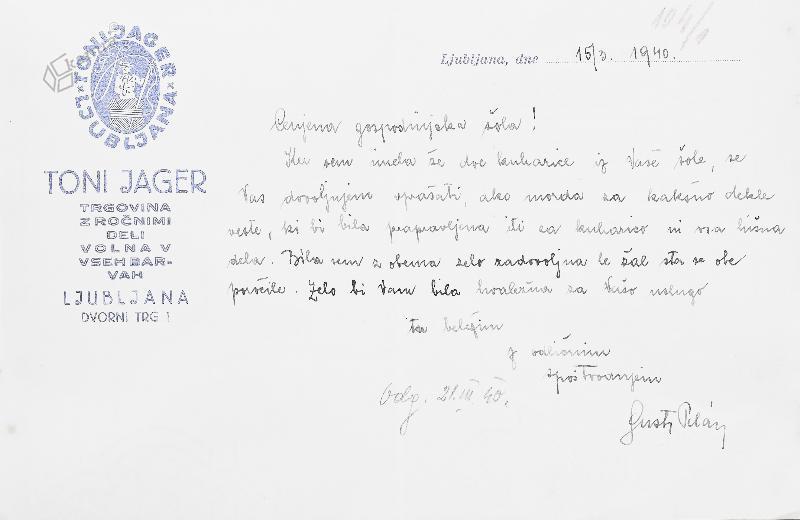 TONI JAGER
LJUBLJANA
TONI JAGER
TRGOVINA
Z ROČNIMI
DELI
VOLNA V
VSEH BAR-
VAH
LJUBLJANA
DVORNI TRG 1
194/1
Ljubljana, dne 15/3. 1940.
Cenjena gospodinjska šola!
Ker sem imela že dve kuharice iz Vaše šole, se
Vas dovoljujem vprašati, ako morda za kakšno dekle
veste, ki bi bila pripravljena iti za kuharico in vsa hišna
dela. Bila sem z obema zelo zadovoljna le žal sta se obe
poročile. Zelo bi Vam bila hvaležna za Vašo uslugo
ter beležim
z odličnim
spoštovanjem
Odg. 21. III. 40.